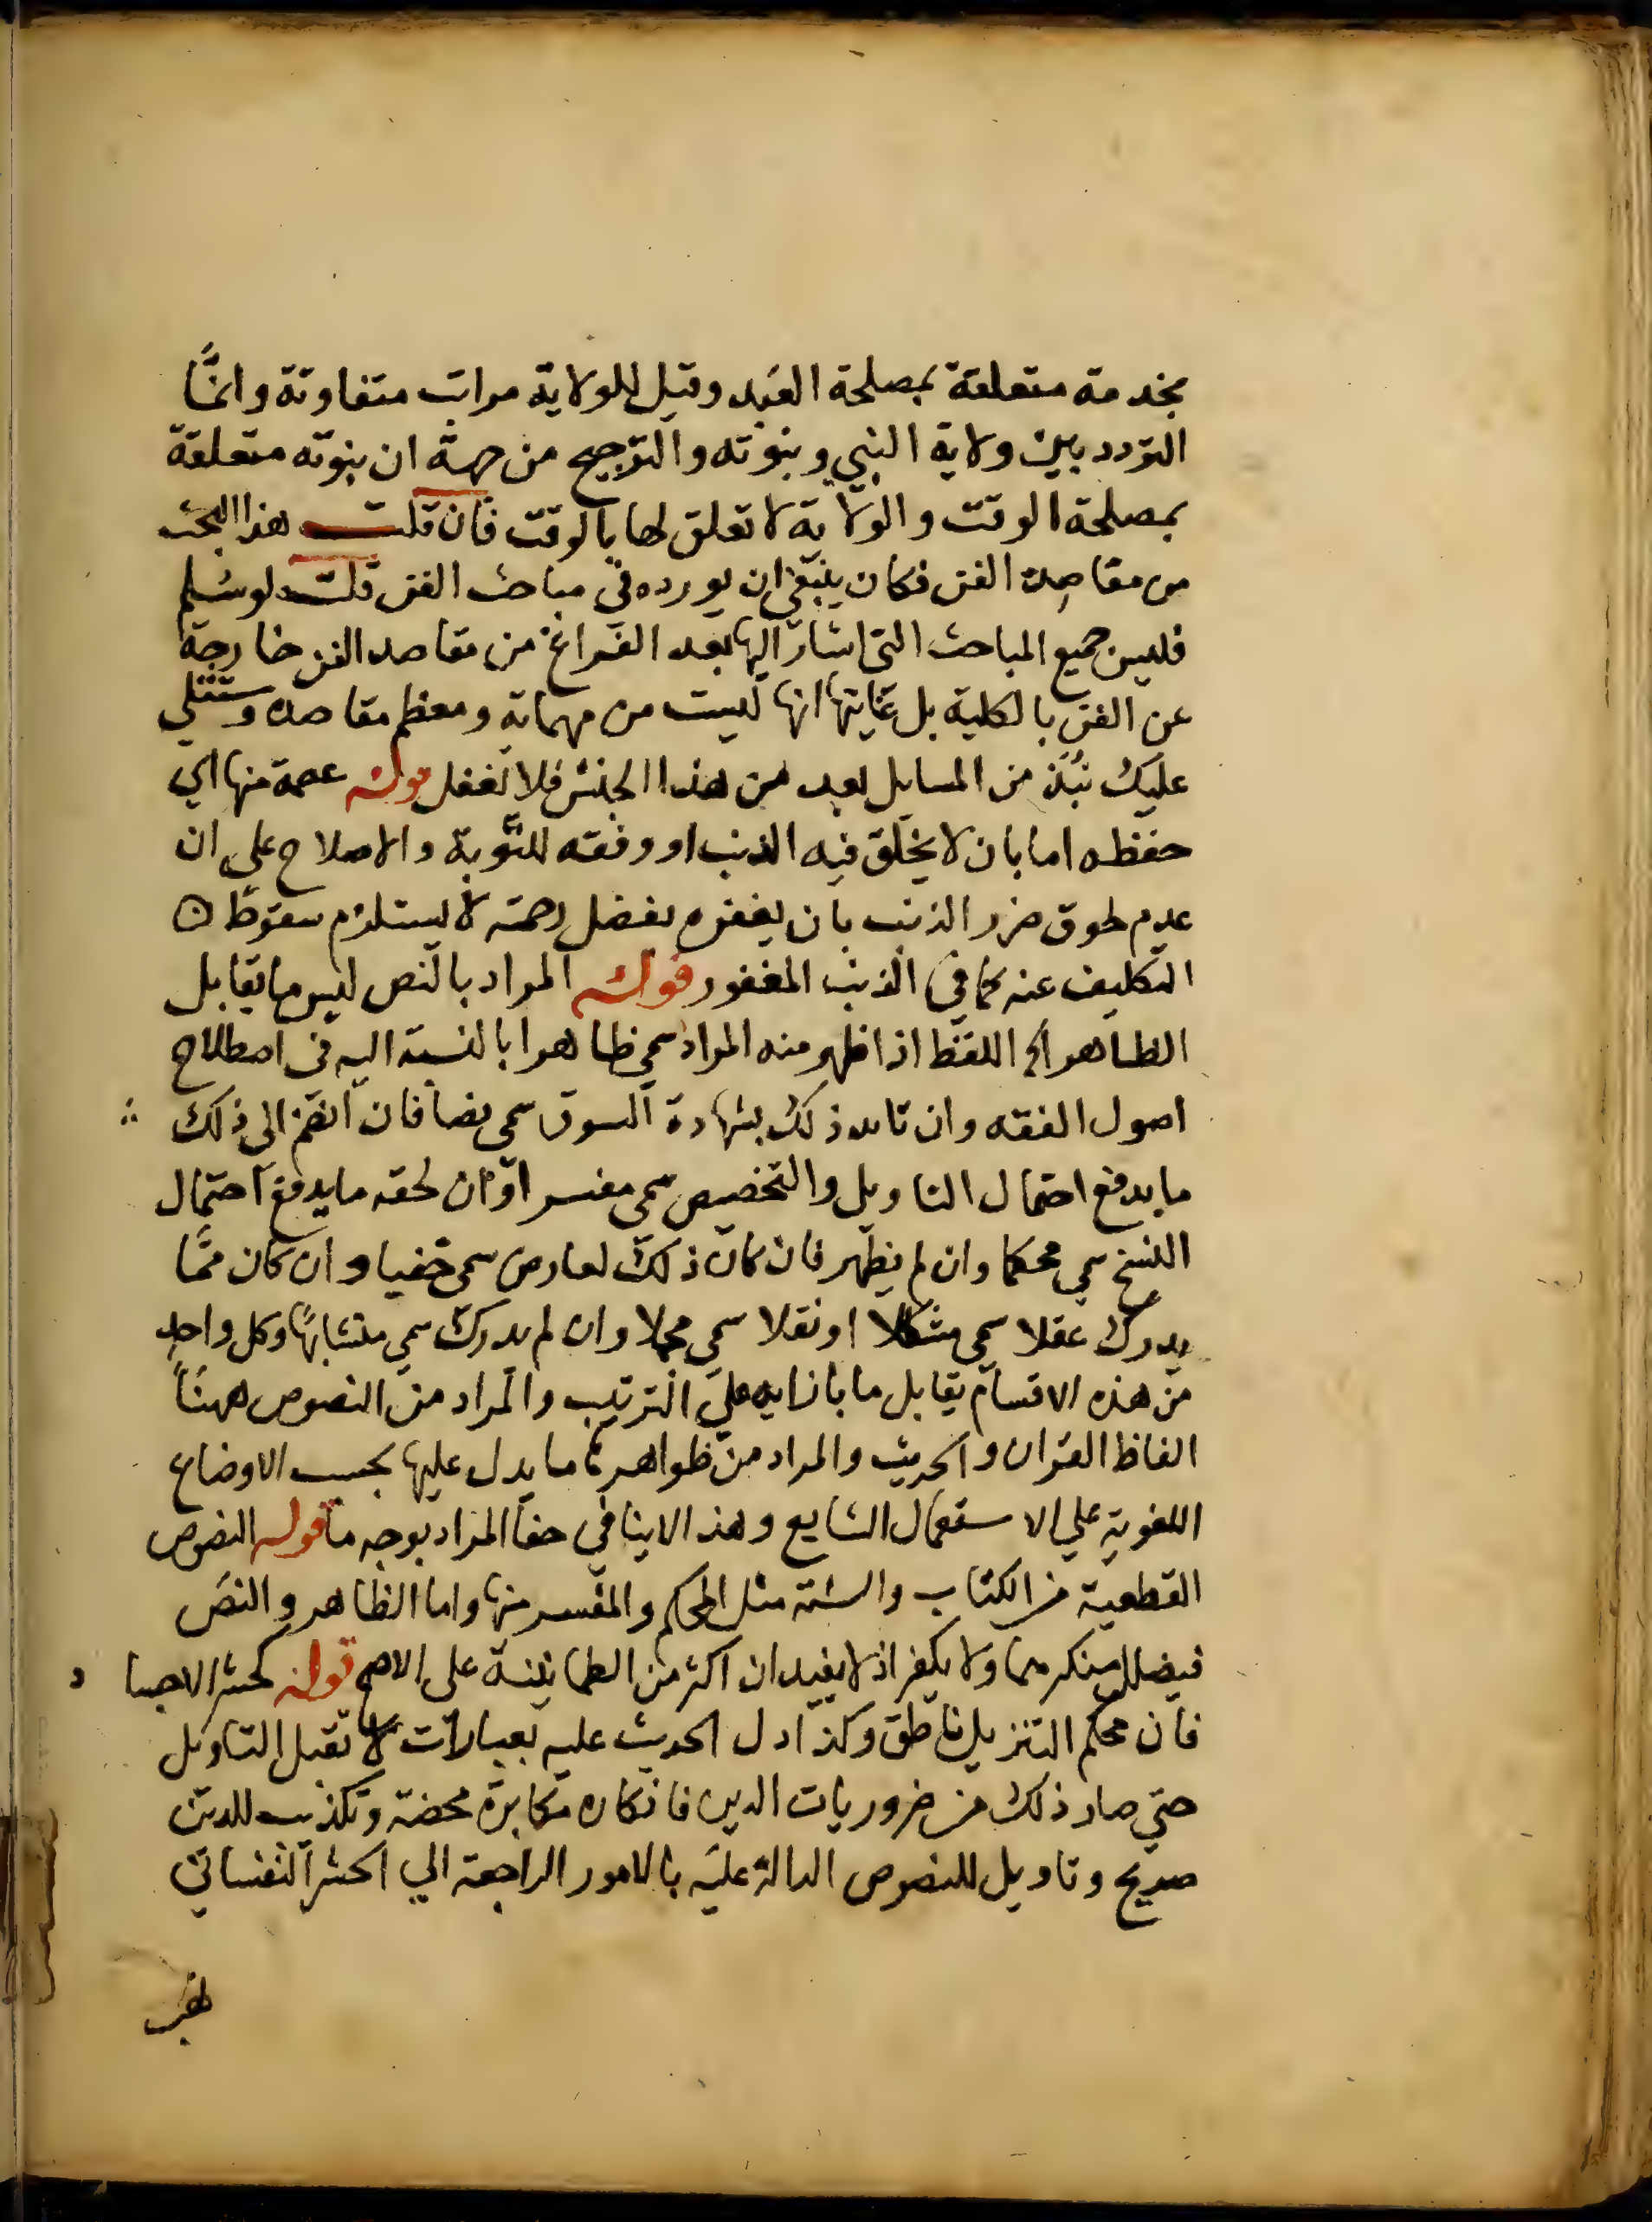 بخدمة متعلقة بمصلحة العبد وقيل للولاية مراتب متفاوتة وانما
التردد بين ولاية النبي ونبوته والترجيح من جهة ان نبوته متعلقة
بمصلحة الوقت والولاية لا تعلق لها بالوقت فان قلت هذا البحث
من مقاصد الفن فكان ينبغي ان يورده في مباحث الفن قلت لو سلم
فليس جميع المباحث التي اشار اليها بعد الفراغ من مقاصد الفن خارجة
عن الفن بالكلية بل غايتها انها ليست من مهماته ومعظم مقاصده وستتلي
عليك نبذ من المسايل بعد من هذا الجنس فلا تغفل قوله عصمة منها اي
حفظه اما بان لا يخلق فيه الذنب او وفقه للتوبة والاصلاح علي ان
عدم لحوق ضرر الذنب بان يغفره بفضل رحمته لا يستلزم سقوط
التكليف عنه كما في الذنب المغفور قوله المراد بالنص ليس ما يقابل
الظاهر الخ اللفظ اذا ظهر منه المراد سمي ظاهرا بالنسبة اليه في اصطلاح
اصول الفقه وان تايد ذلك بشهادة السوق سمي نصا فان انضم الى ذلك
ما يدفع احتمال التاويل والتخصيص سمي مفسرا وان لحقه ما يدفع احتمال
النسخ سمي محكما وان لم يظهر فان كان ذلك لعارض سمي خفيا وان كان مما
يدرك عقلا سمي مشكلا او نقلا سمي مجملا وان لم يدرك سمي متشابها وكل واحد
من هذه الاقسام يقابل ما بازايه علي الترتيب والمراد من النصوص ههنا
الفاظ القران والحديث والمراد من ظواهرها ما يدل عليها بحسب الاوضاع
اللغوية علي الاستعمال الشايع وهذا لا ينافي خفا المراد بوجه ما قوله النصوص
القطعية من الكتاب والسنة مثل المحكم والمفسر منها واما الظاهر والنص
فيضلل منكرهما ولا يكفر اذ لا يفيدان اكثر من الطمانينة على الاصح قوله كحشر الاجساد
فان محكم التنزيل ناطق وكذا دل الحديث عليه بعبارات لا تقبل التاويل
حتي صار ذلك من ضروريات الدين فانكاره مكابرة محضة وتكذيب للدين
صريح وتاويل للنصوص الدالة عليه بالامور الراجعة الي الحشر النفساني